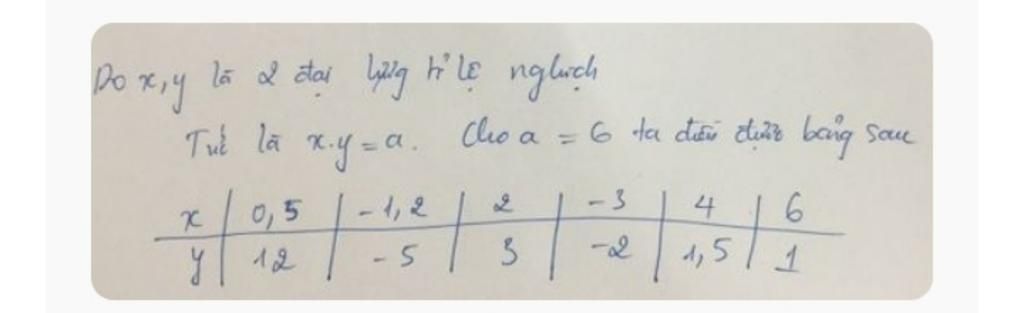 Do x,y là 2 đại lượng tỉ lệ nghịch
Tức là x.y = a. Cho a = 6 ta điền được bảng sau
x | 0,5 | -1,2 | 2 | -3 | 4 | 6
y | 12 | -5 | 3 | -2 | 1,5 | 1